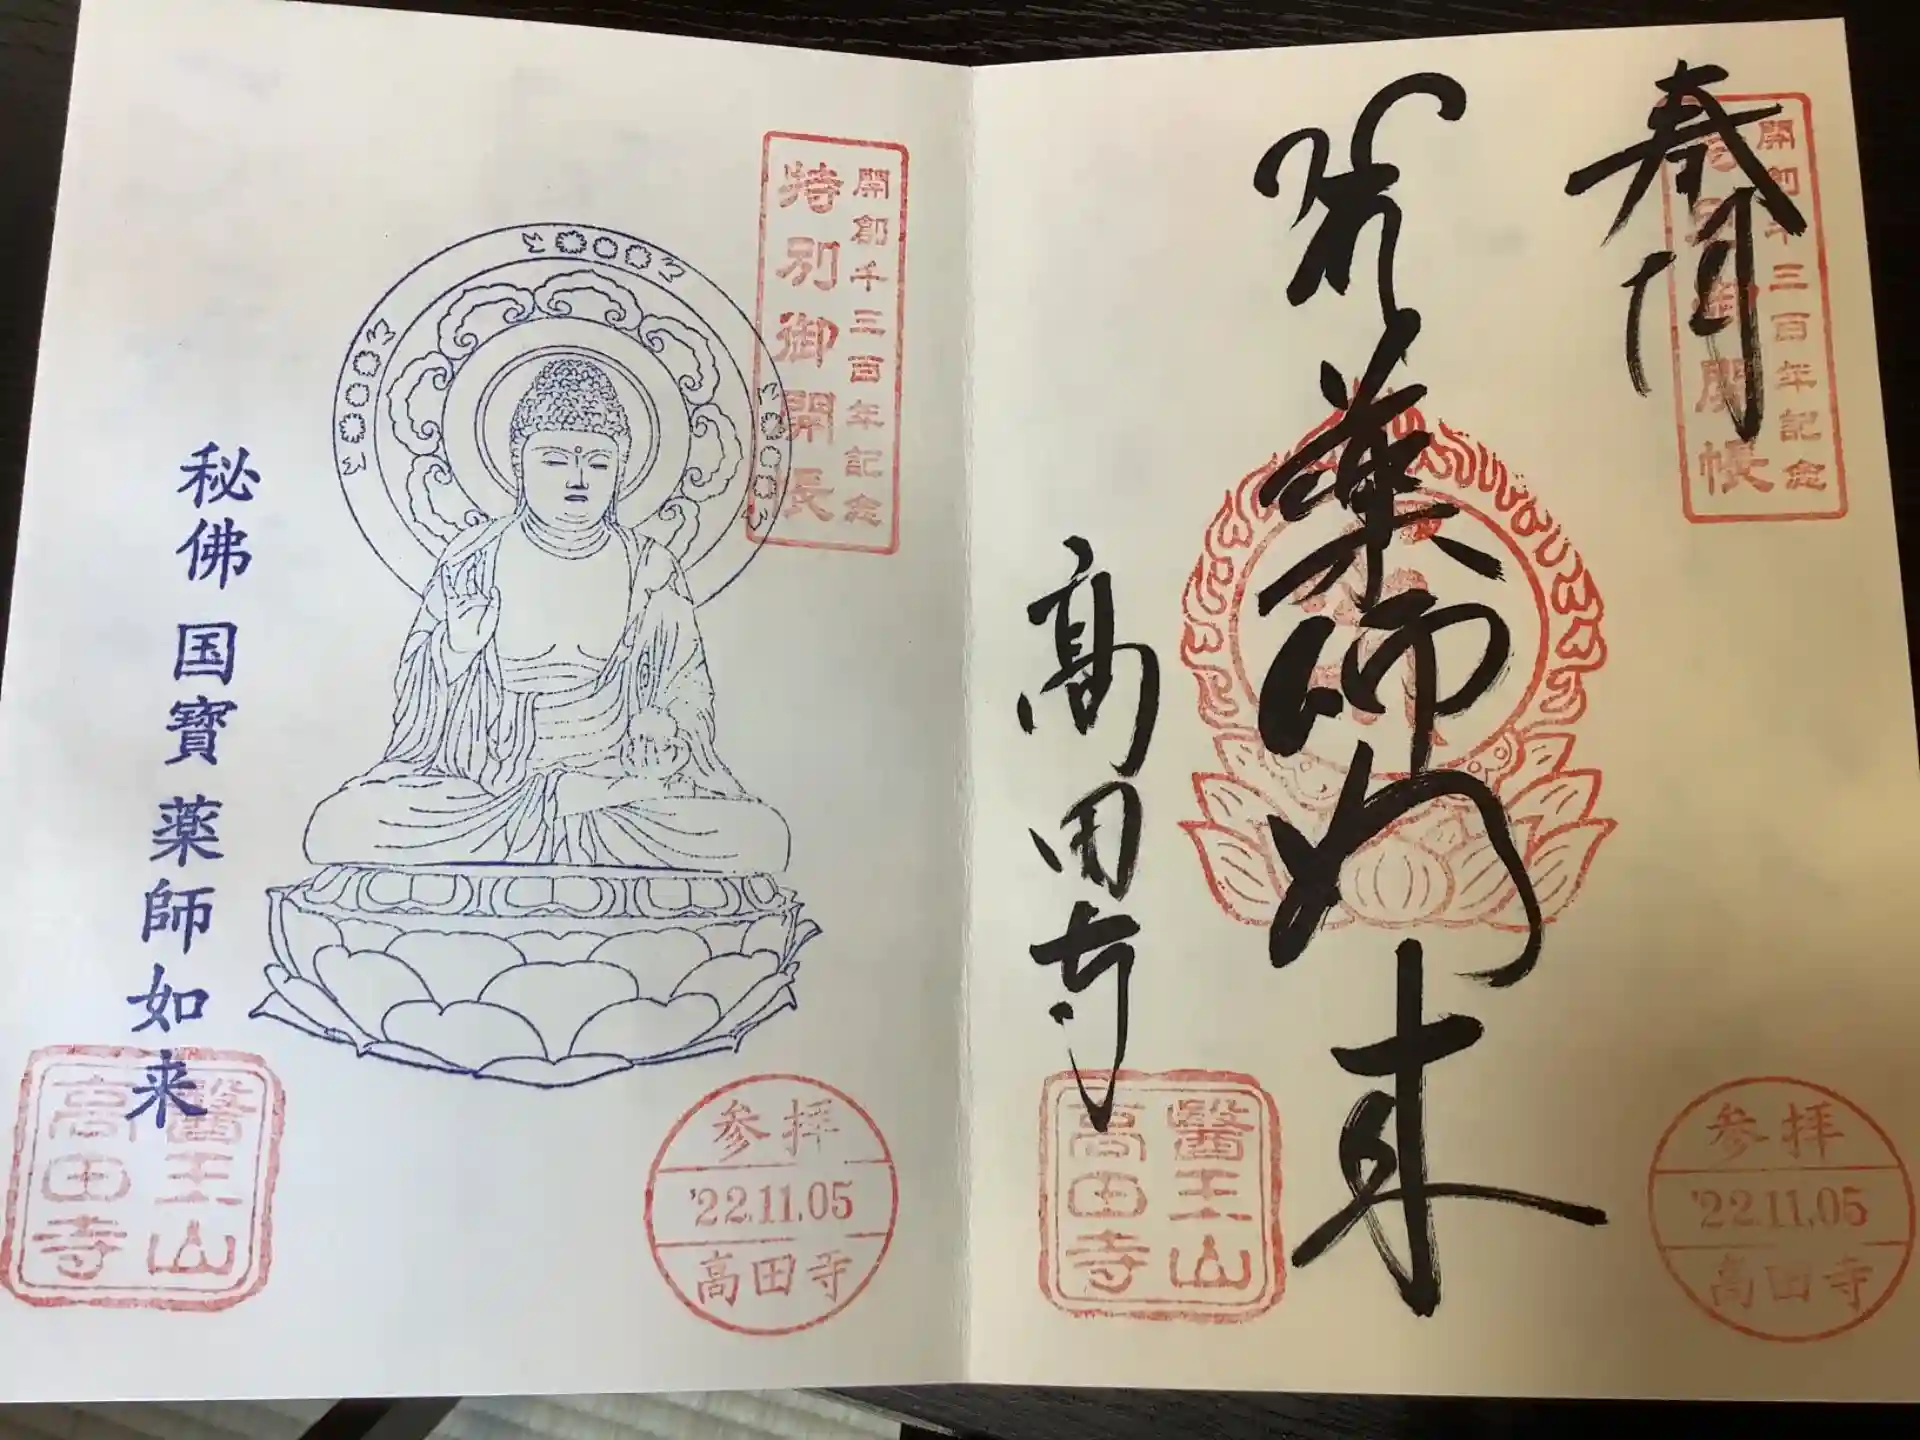 奉
開創千三百年記念
特別御開帳
薬師如来
高田寺
醫王山
高田寺
参拝
'22.11.05
高田寺
開創千三百年記念
特別御開帳
秘佛 国寶 薬師如来
醫王山
高田寺
参拝
'22.11.05
高田寺